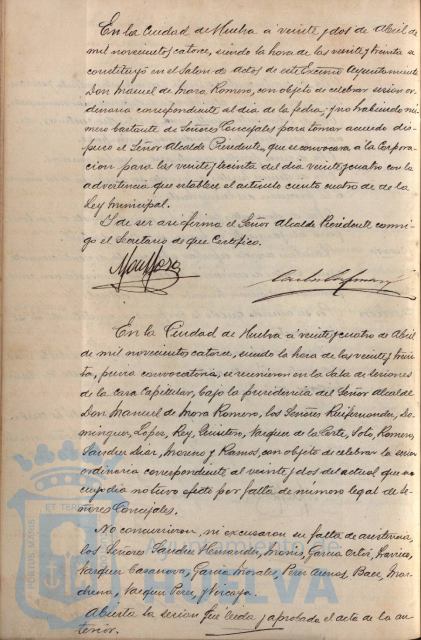 En la Ciudad de Huelva á veinte y dos de Abril de
mil novecientos catorce, siendo la hora de las veinte y treinta se
constituyó en el Salon de Actos de este Excmo Ayuntamiento
Don Manuel de Mora Romero, con objeto de celebrar sesión or-
dinaria correspondiente al dia de la fecha, y no habiendo nú-
mero bastante de Señores Concejales para tomar acuerdo dis-
puso el Señor Alcalde Presidente, que se convocara á la Corpora-
cion para las veinte y treinta del dia veinte y cuatro con la
advertencia que establece el artículo ciento cuatro de la
Ley Municipal.
Y de ser asi firma el Señor Alcalde Presidente conmi-
go el Secretario de que Certifico.
En la Ciudad de Huelva á veinte y cuatro de Abril
de mil novecientos catorce, siendo la hora de las veinte y trein-
ta, previa convocatoria, se reunieron en la Sala de Sesiones
de la Casa Capitular, bajo la presidencia del Señor Alcalde
Don Manuel de Mora Romero, los Señores Ruifernandez, Do-
minguez, Lopez, Rey, Quintero, Vazquez de la Corte, Soto, Romero,
Sanchez Diaz, Moreno y Ramos, con objeto de celebrar la sesion
ordinaria correspondiente al veinte y dos del actual que en
cuyo dia no tuvo efecto por falta de número legal de Se-
ñores Concejales.
No concurrieron, ni excusaron su falta de asistencia,
los Señores Sanchez Hernandez, Garcia Ortiz,
Vazquez Casanova, Garcia Morales, Perez Baez, Mar-
chena, Vazquez Perez, y Vizcaya.
Abierta la sesion fué leida y aprobada el acta de la an-
terior.
ET TERRAE
PORTUS MARIS
Ayuntamiento
HUELVA